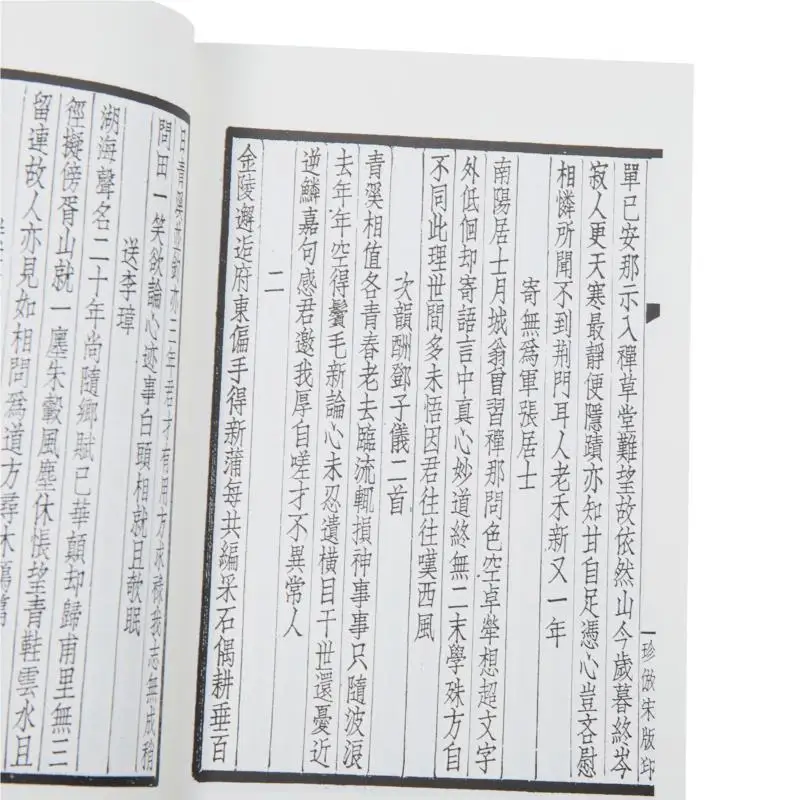 珍倣宋版印
單已安那示入禪草堂難望故依然山今歲暮終岑
寂人更天寒最靜便隱蹟亦知甘自足憑心豈吝慰
相憐所聞不到荆門耳人老禾新又一年
寄無爲軍張居士
南陽居士月城翁曾習禪那問色空卓犖想超文字
外低佪却寄語言中真心妙道終無二末學殊方自
不同此理世間多未悟因君往往嘆西風
次韻酬鄧子儀二首
青溪相值各青春老去臨流輒損神事事只隨波浪
去年年空得鬢毛新論心未忍遺橫目干世還憂近
逆鱗嘉句感君邀我厚自嗟才不異常人
二
金陵邂逅府東偏手得新蒲每共編采石偶耕垂百
日青溪並釣亦三年君才有用方求祿我志無成稍
問田一笑欲論心迹事白頭相就且欹眠
送李璋
湖海聲名二十年尚隨鄉賦已華顛却歸甫里無三
徑擬傍胥山就一廛朱轂風塵休悵望青鞋雲水且
留連故人亦見如相問爲道方尋木鴈篇